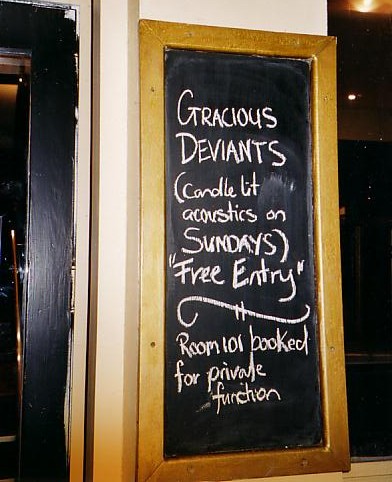 GRACIOUS
DEVIANTS
(Candle lit
acoustics on
SUNDAYS)
"Free Entry"
Room 101 booked
for private
function